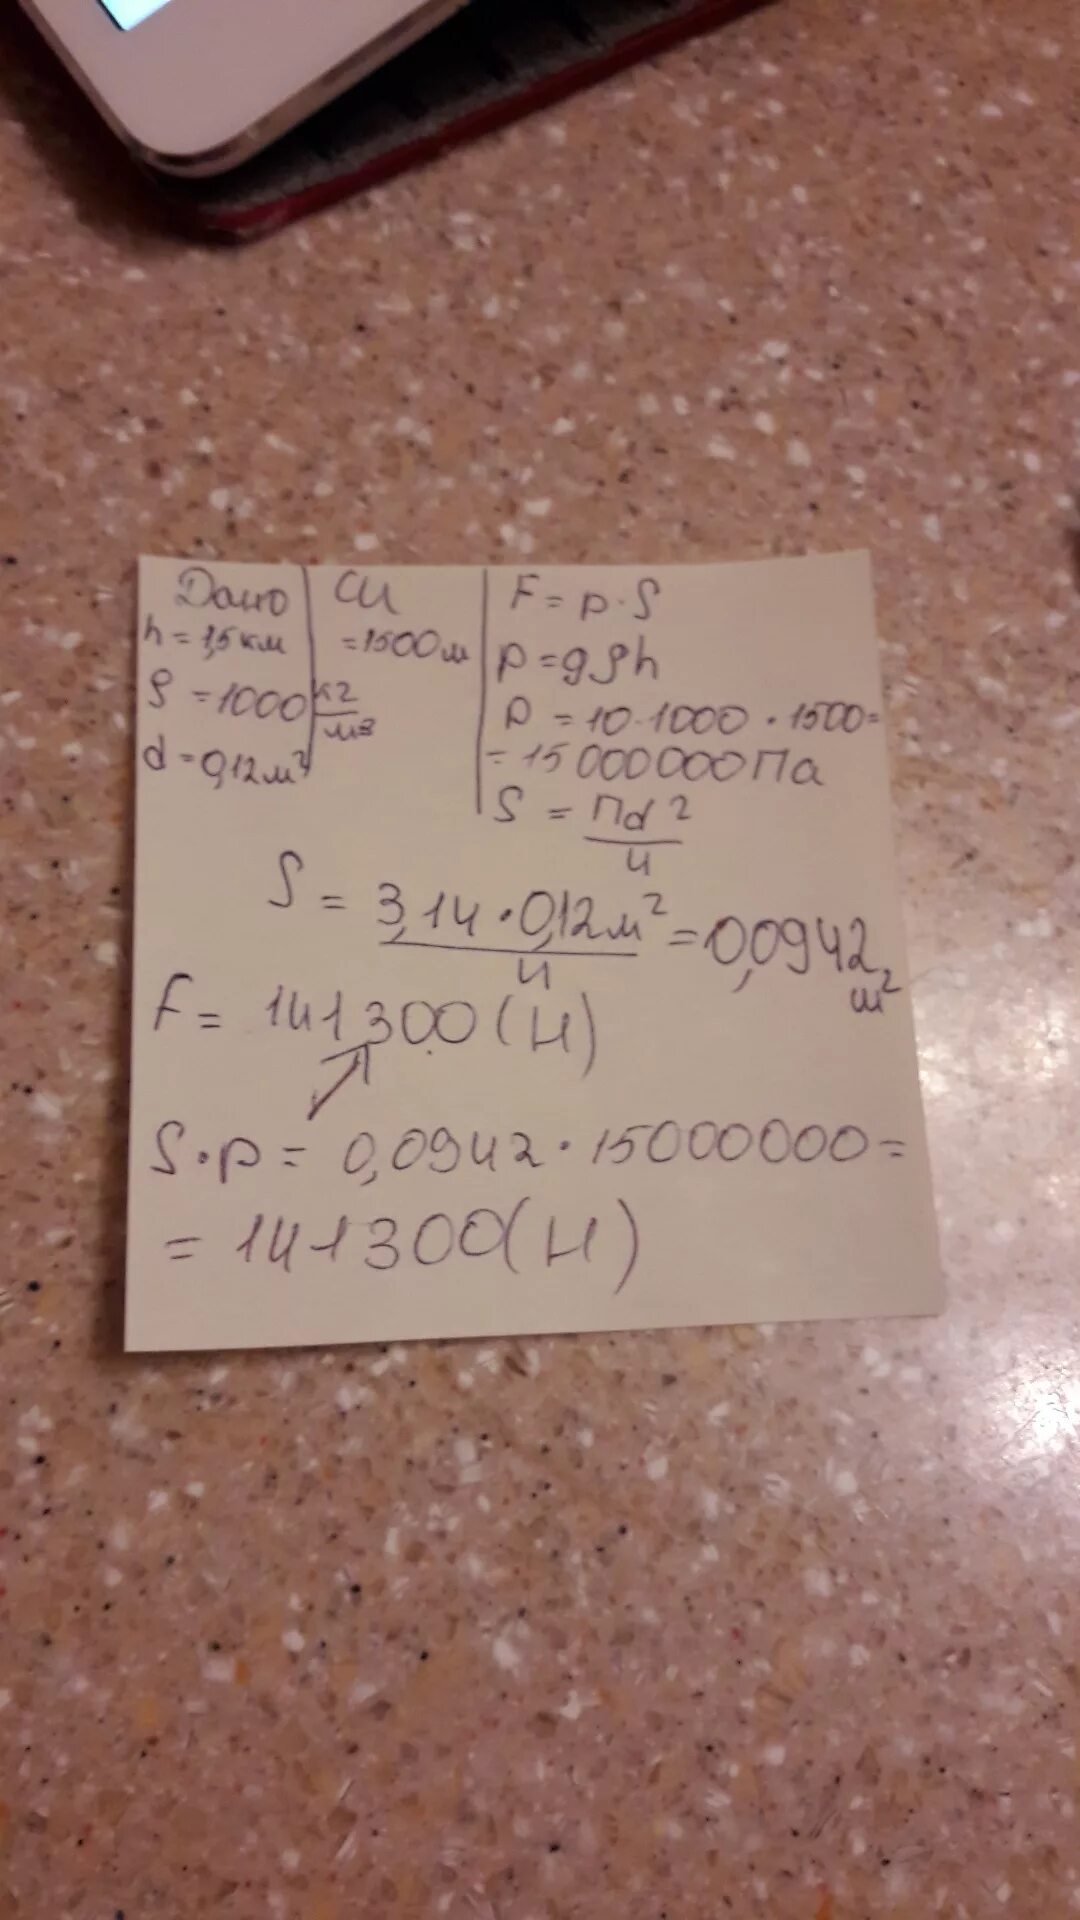 Дано | СИ
h = 1,5 км | = 1500 м
ρ = 1000 кг/м3
d = 0,12 м²
F = p · S
p = gρh
p = 10 · 1000 · 1500 =
= 15 000000 Па
S = Пd²/4
S = 3,14 · 0,12 м²/4 = 0,0942 м²
F = 141300 (Н)
S · p = 0,0942 · 15000000 =
= 141300 (Н)